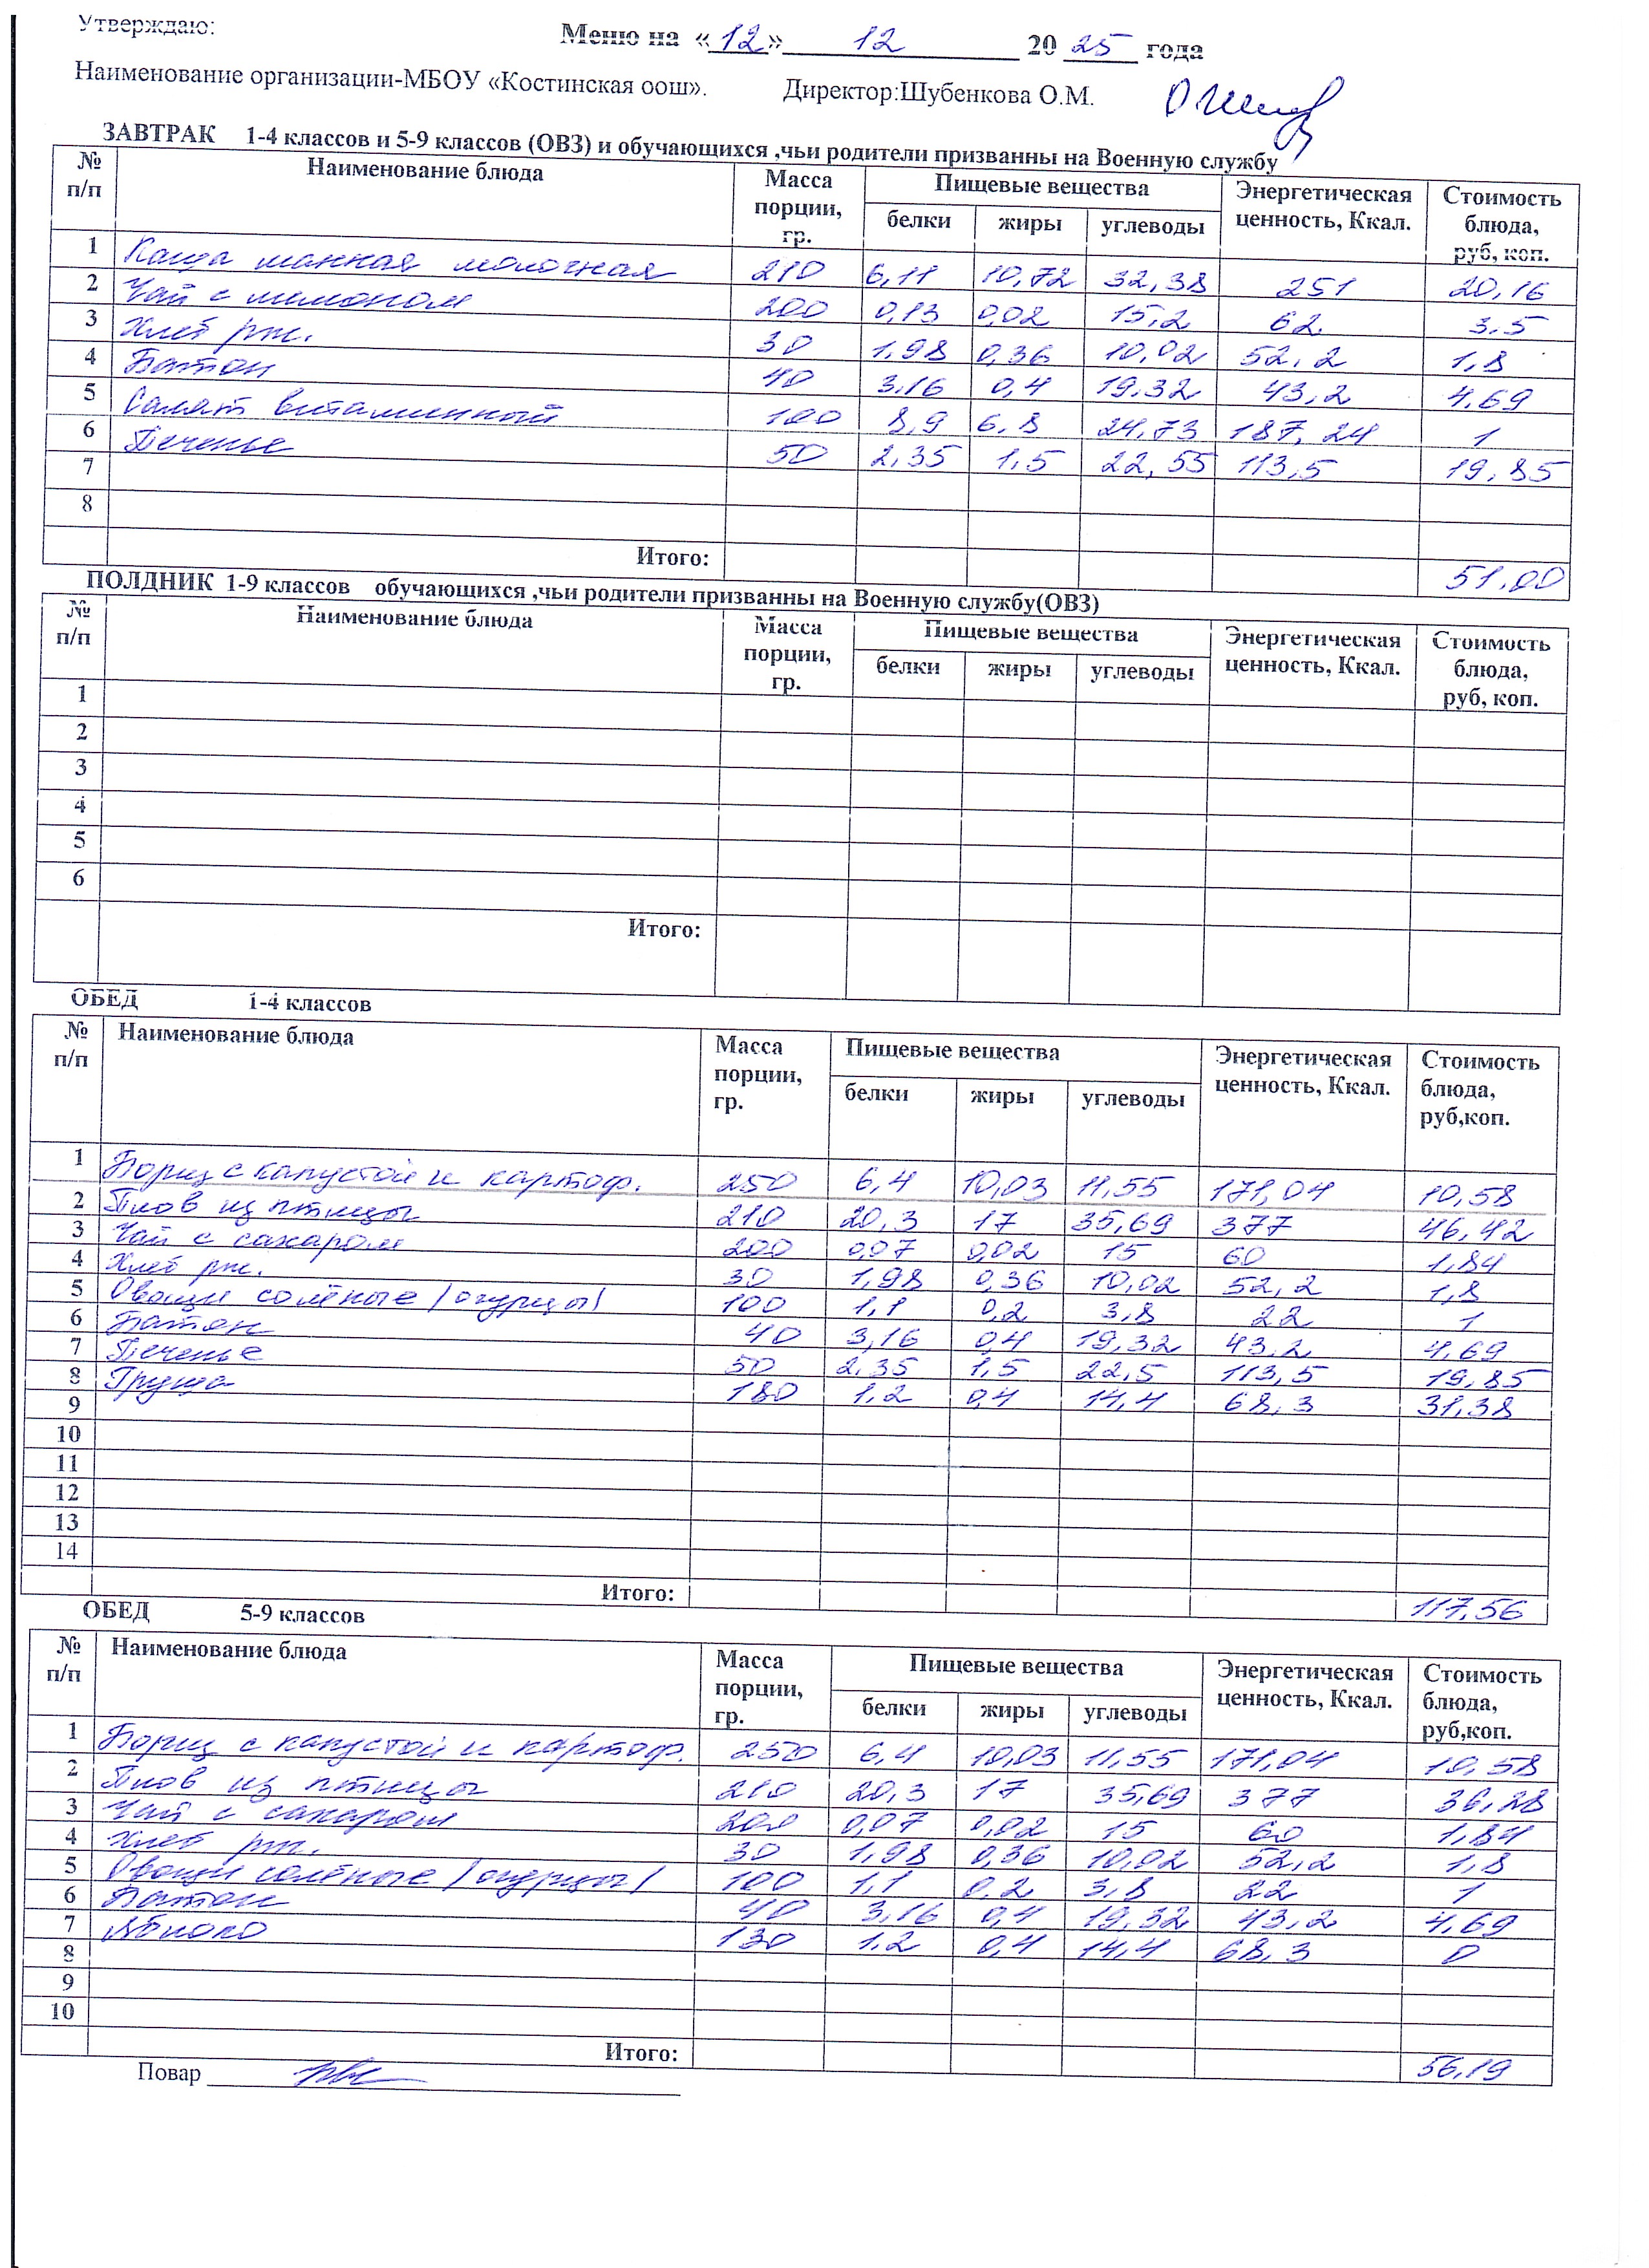 Утверждаю:
Меню на «12» 12 2025 года
Наименование организации-МБОУ «Костинская оош». Директор:Шубенкова О.М.
ЗАВТРАК 1-4 классов и 5-9 классов (ОВЗ) и обучающихся ,чьи родители призванны на Военную службу
№ п/п Наименование блюда Масса порции, гр. Пищевые вещества Энергетическая ценность, Ккал. Стоимость блюда, руб, коп.
белки жиры углеводы
1 Каша манная молочная 210 6,11 10,72 32,38 251 20,16
2 Чай с лимоном 200 0,13 0,02 15,2 62 3,5
3 Хлеб рж. 30 1,98 0,36 10,02 52,2 1,8
4 Батон 40 3,16 0,4 19,32 43,2 4,69
5 Салат витаминный 100 8,9 6,8 24,73 187,24 1
6 Печенье 50 2,35 1,5 22,55 113,5 19,85
7
8
Итого: 51,00
ПОЛДНИК 1-9 классов обучающихся ,чьи родители призванны на Военную службу(ОВЗ)
№ п/п Наименование блюда Масса порции, гр. Пищевые вещества Энергетическая ценность, Ккал. Стоимость блюда, руб, коп.
белки жиры углеводы
1
2
3
4
5
6
Итого:
ОБЕД 1-4 классов
№ п/п Наименование блюда Масса порции, гр. Пищевые вещества Энергетическая ценность, Ккал. Стоимость блюда, руб,коп.
белки жиры углеводы
1 Борщ с капустой и картоф. 250 6,4 10,03 11,55 171,04 10,58
2 Плов из птицы 210 20,3 17 35,69 377 46,42
3 Чай с сахаром 200 0,07 0,02 15 60 1,84
4 Хлеб рж. 30 1,98 0,36 10,02 52,2 1,8
5 Овощи солёные /огурцы/ 100 1,1 0,2 3,8 22 1
6 Батон 40 3,16 0,4 19,32 43,2 4,69
7 Печенье 50 2,35 1,5 22,5 113,5 19,85
8 Груша 180 1,2 0,4 14,4 68,3 31,38
9
10
11
12
13
14
Итого: 117,56
ОБЕД 5-9 классов
№ п/п Наименование блюда Масса порции, гр. Пищевые вещества Энергетическая ценность, Ккал. Стоимость блюда, руб,коп.
белки жиры углеводы
1 Борщ с капустой и картоф. 250 6,4 10,03 11,55 171,04 10,58
2 Плов из птицы 210 20,3 17 35,69 377 36,28
3 Чай с сахаром 200 0,07 0,02 15 60 1,84
4 Хлеб рж. 30 1,98 0,36 10,02 52,2 1,8
5 Овощи солёные /огурцы/ 100 1,1 0,2 3,8 22 1
6 Батон 40 3,16 0,4 19,32 43,2 4,69
7 Яблоко 130 1,2 0,4 14,4 68,3 0
8
9
10
Итого: 56,19
Повар